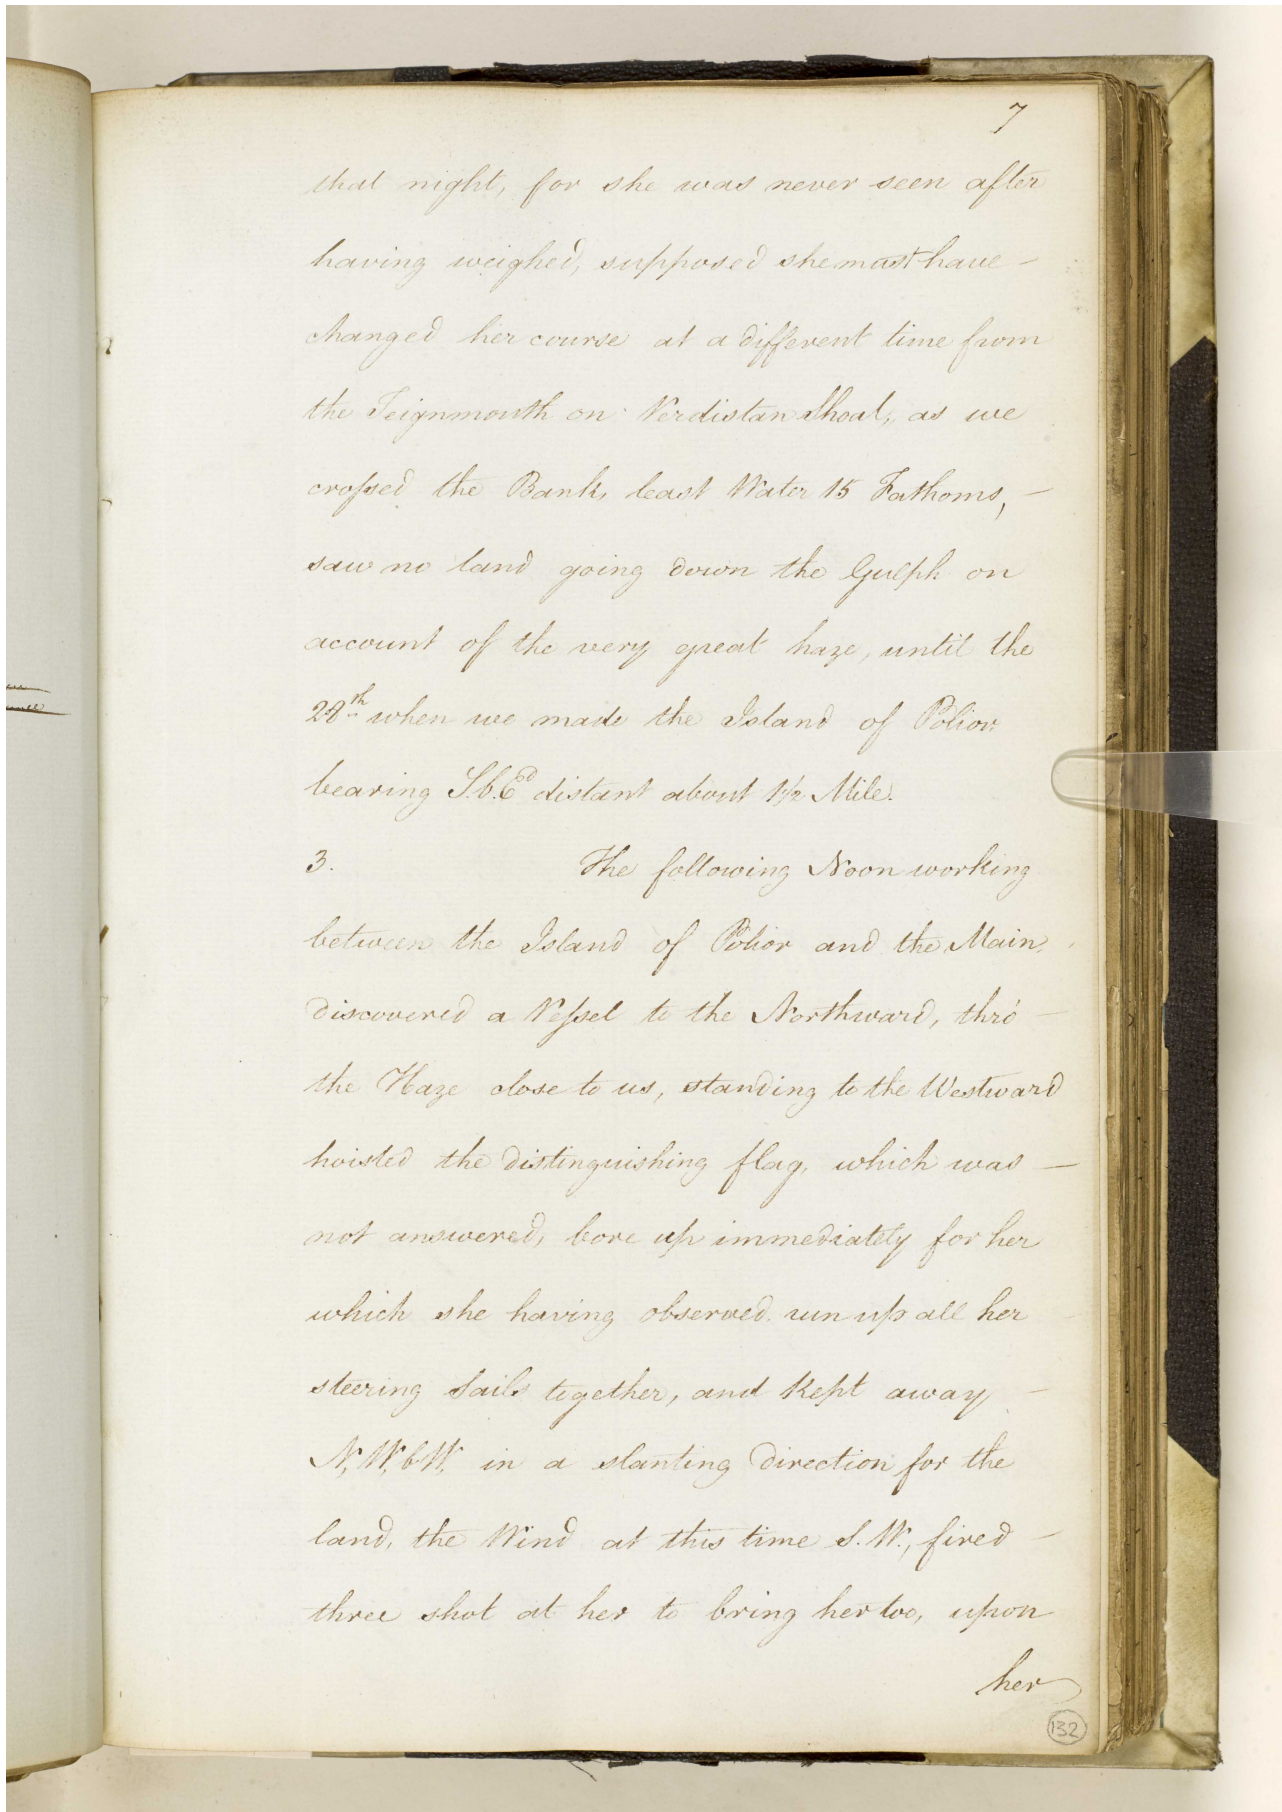 7
that night, for she was never seen after
having weighed, supposed she must have —
changed her course at a different time from
the Teignmouth on Verdistan Shoal, as we
crossed the Bank, least Water 15 Fathoms, —
saw no land going down the Gulph on
account of the very great haze, until the
28th when we made the Island of Polior
bearing S.b.Ed distant about 1½ Mile.
3. The following Noon working
between the Island of Polior and the Main,
discovered a Vessel to the Northward, thro' —
the Haze close to us, standing to the Westward
hoisted the distinguishing flag, which was —
not answered, bore up immediately for her
which she having observed run up all her
steering Sails together, and kept away —
N,W,b.W, in a slanting direction for the
land, the Wind at this time S.W., fired —
three shot at her to bring her too, upon
her
132